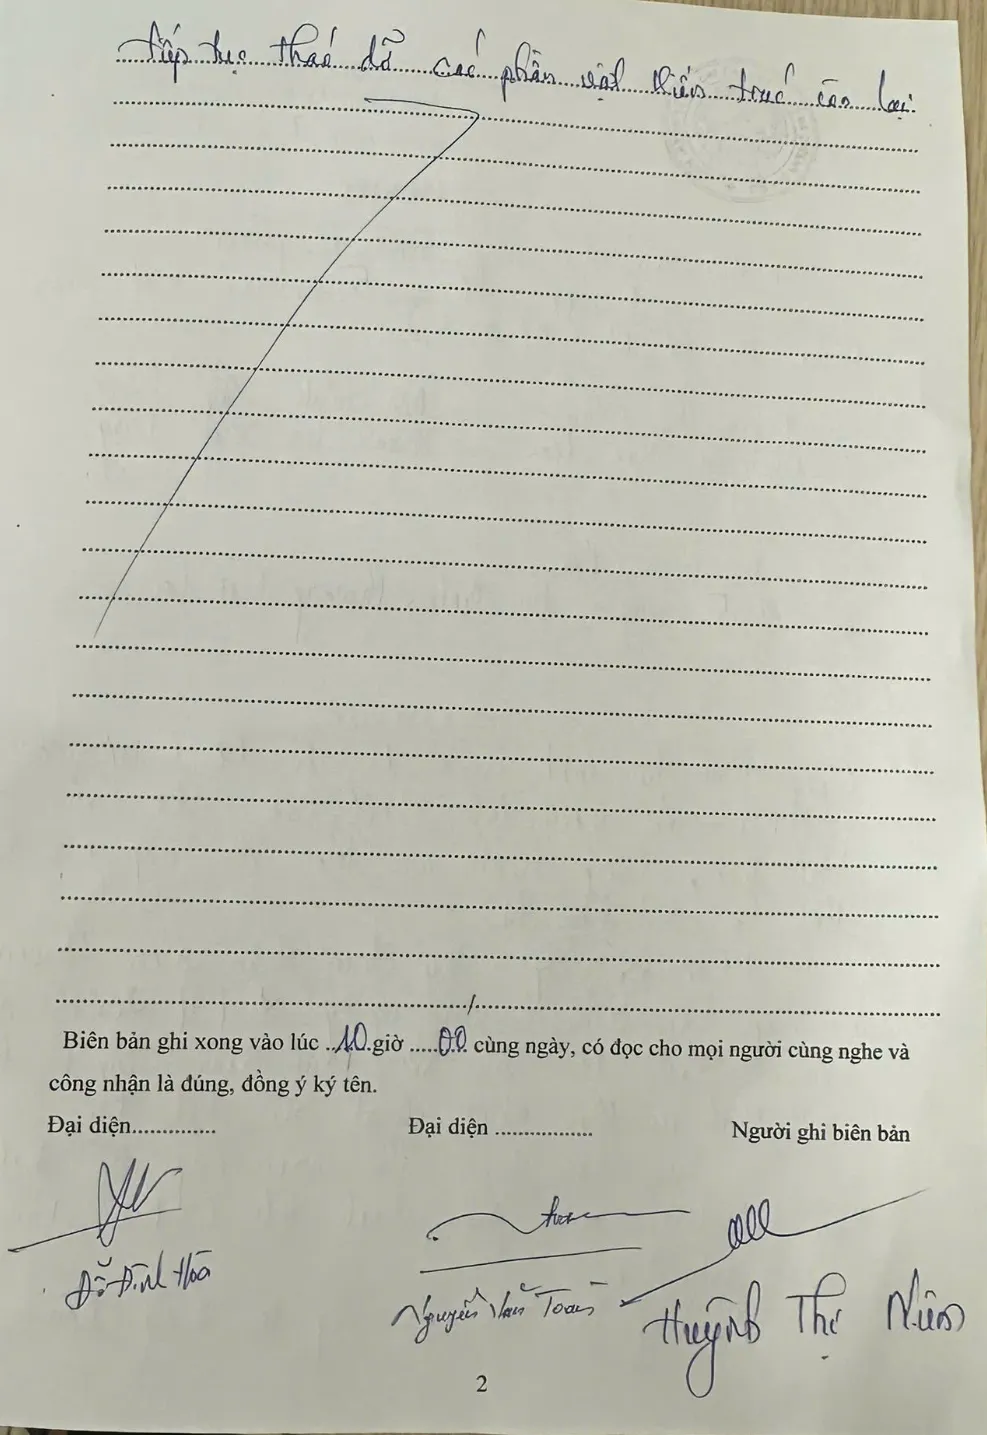 tiếp tục tháo dỡ các phần vật kiến trúc còn lại.
Biên bản ghi xong vào lúc ..10.giờ .....00. cùng ngày, có đọc cho mọi người cùng nghe và
công nhận là đúng, đồng ý ký tên.
Đại diện.............. Đại diện ................. Người ghi biên bản
Đỗ Đình Hòa Nguyễn Văn Toàn Huỳnh Thị
2